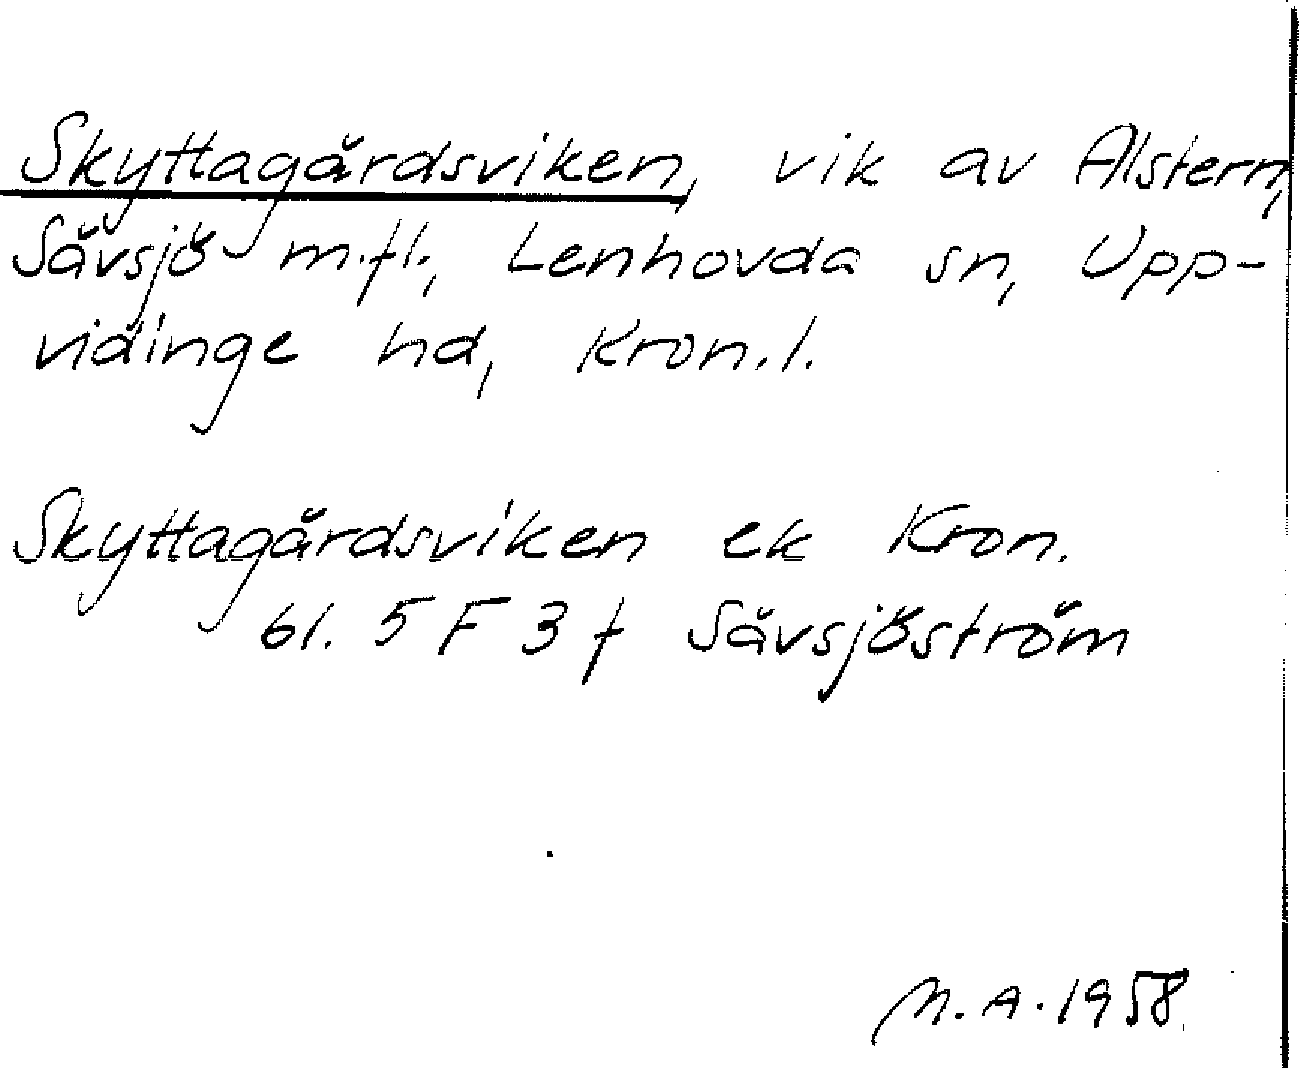 Skyttagårdsviken, vik av Alstern,
Sävsjö m.fl., Lenhovda sn, Upp-
vidinge hd, Kron.l.
Skyttagårdsviken ek Kron.
bl. 5 F 3 f Sävsjöström
M.A. 1958